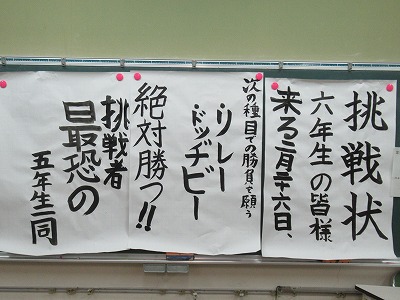 挑戦状
六年生の皆様
来る二月二十六日、
次の種目での勝負を願う
・リレー
・ドッヂビー
絶対勝つ!!
挑戦者
最恐の
五年生一同